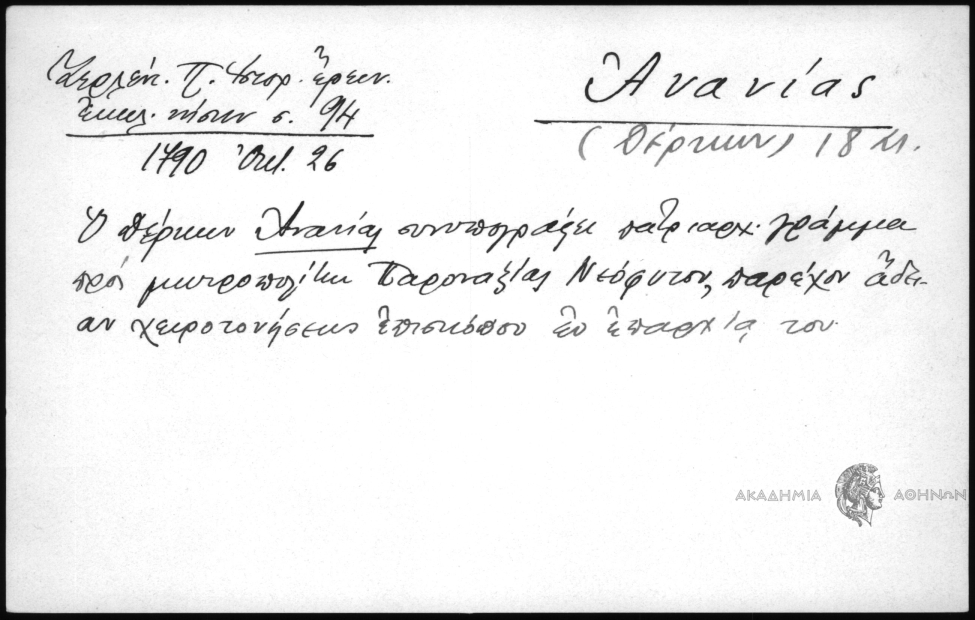 Ζερλέν. Π. Ἱστορ. ἔρευν.
ἐκκλ. νήσων σ. 94
1790 Ὀκτ. 26
Ἀνανίας
(Δέρκων) 18 αι.
Ὁ Δέρκων Ἀνανίας συνυπογράφει πατριαρχ. γράμμα
πρὸς μητροπολίτην Παροναξίας Νεόφυτον, παρέχον ἄδει-
αν χειροτονήσεως ἐπισκόπου ἐν ἐπαρχίᾳ του
ΑΚΑΔΗΜΙΑ ΑΘΗΝΩΝ